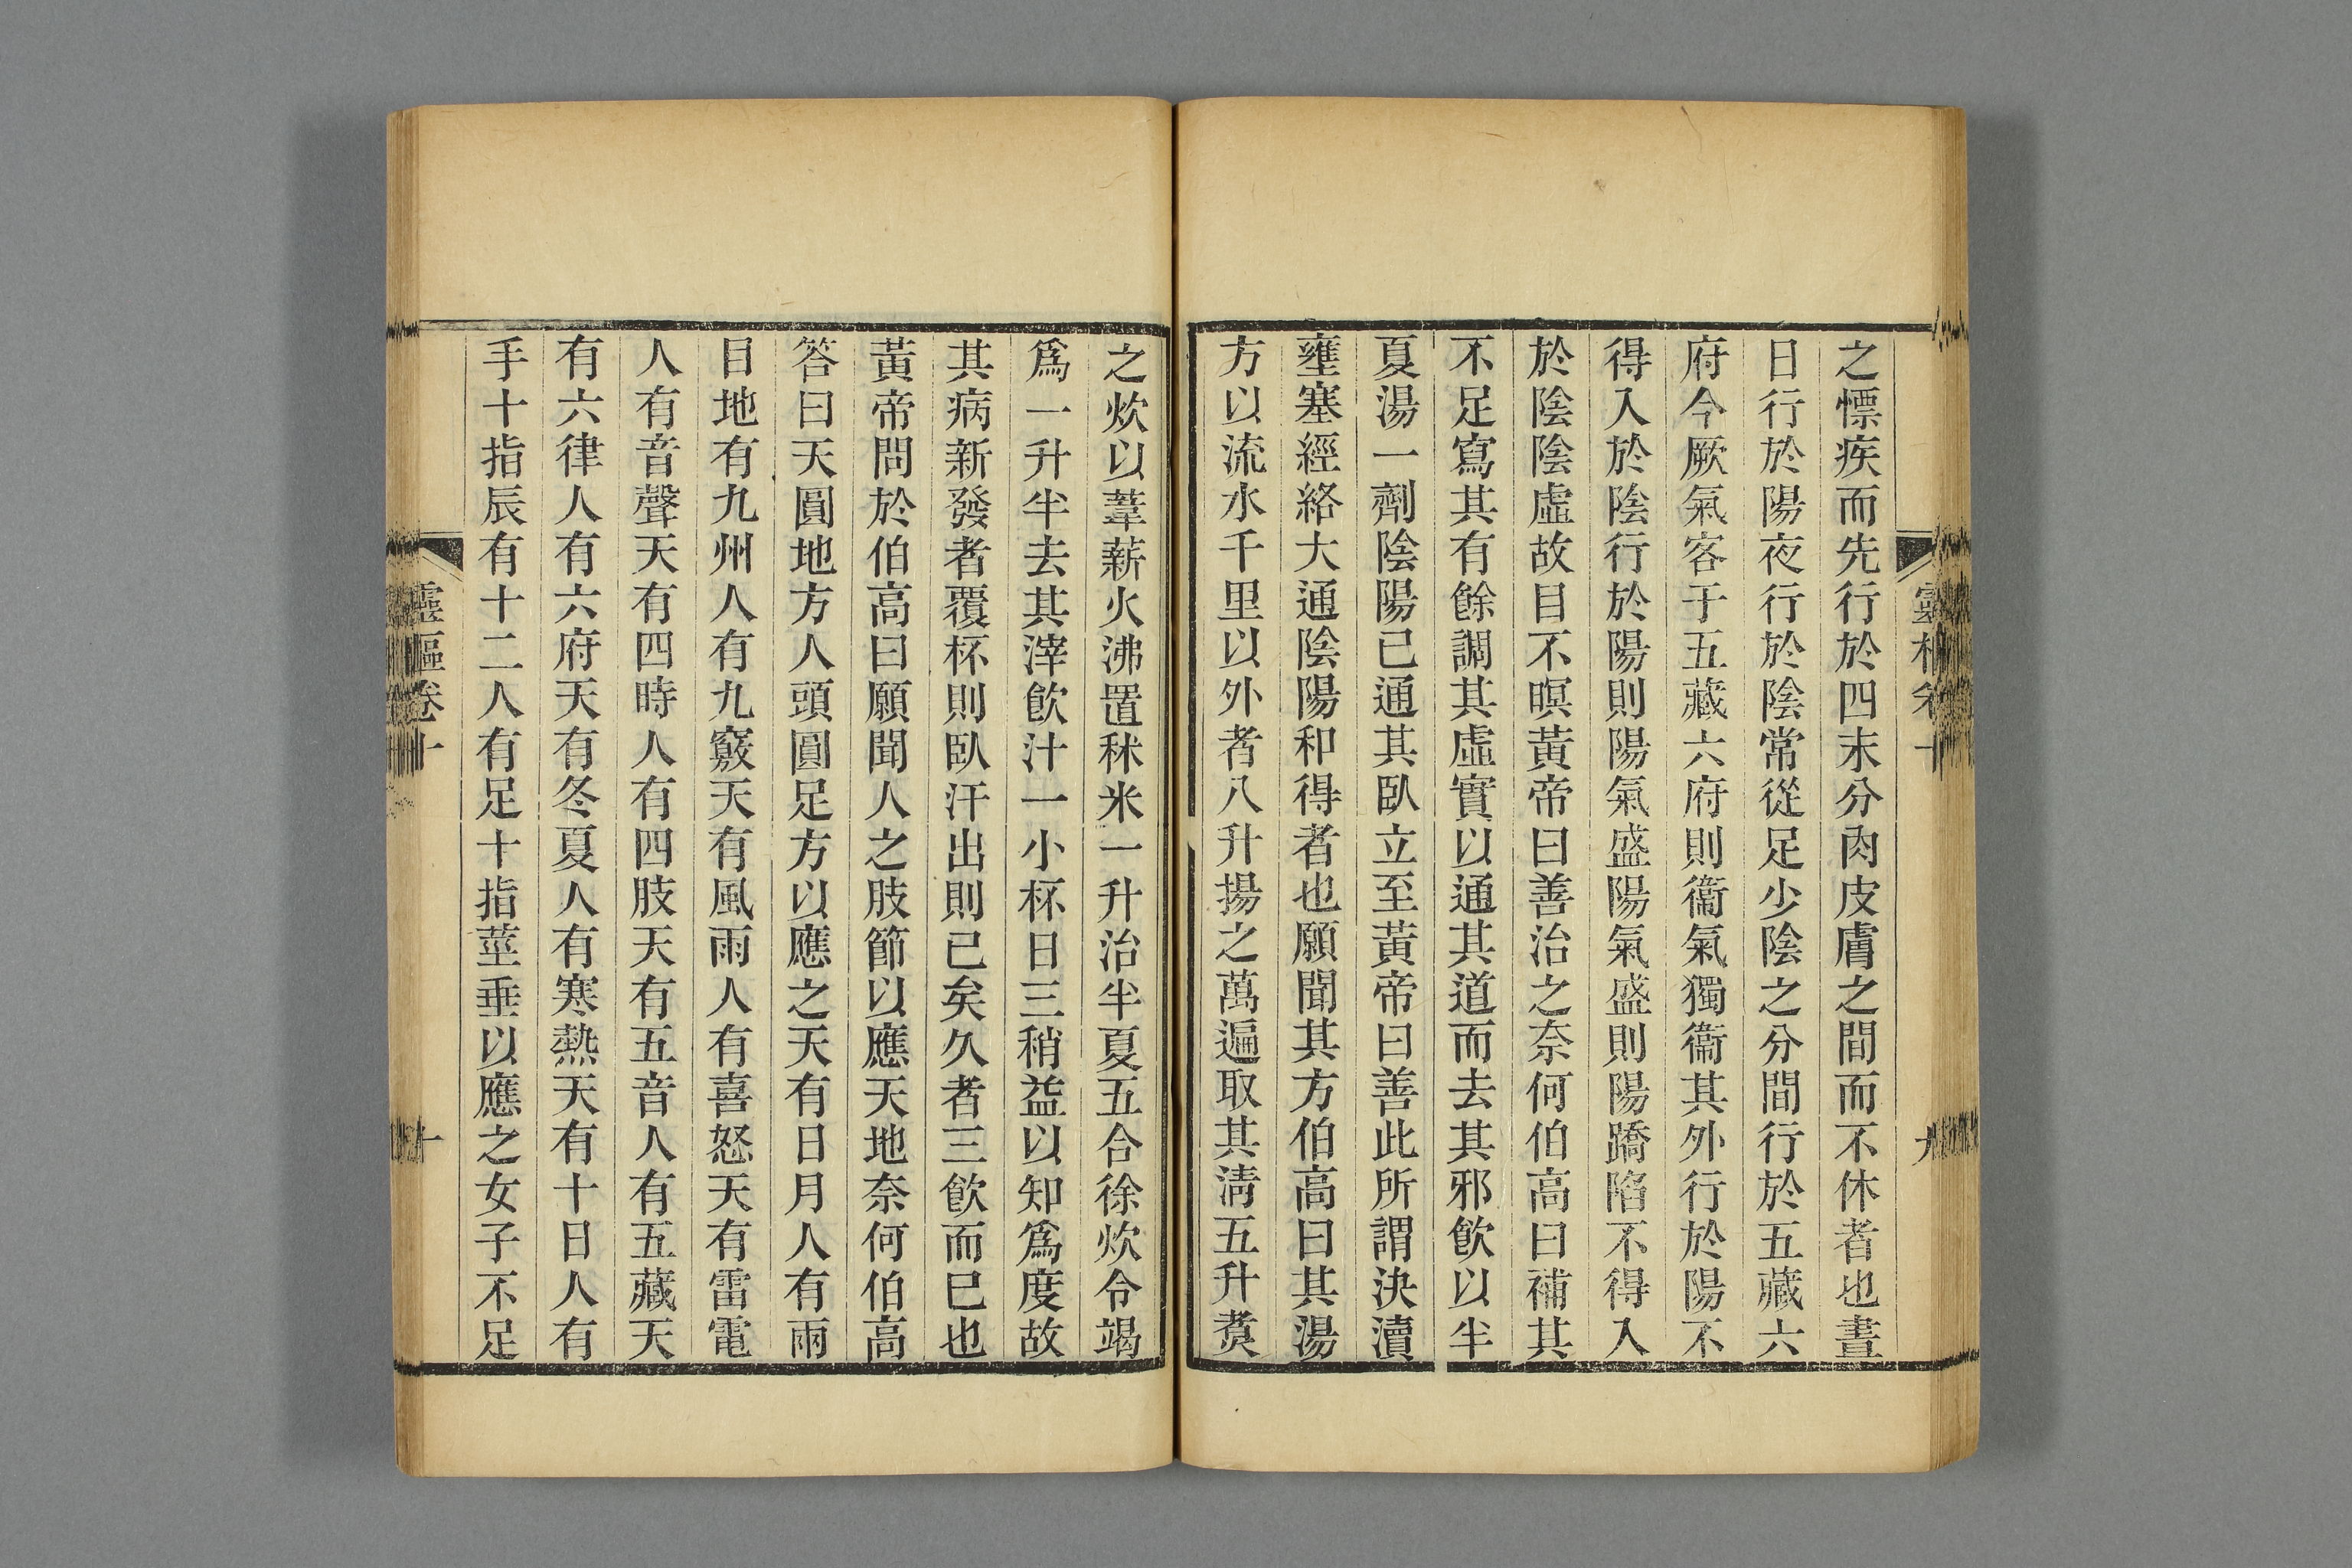 之慓疾而先行於四末分肉皮膚之間而不休者也晝
日行於陽夜行於陰常從足少陰之分間行於五藏六
府今厥氣客于五藏六府則衞氣獨衞其外行於陽不
得入於陰行於陽則陽氣盛陽氣盛則陽蹻陷不得入
於陰陰虛故目不暝黃帝曰善治之奈何伯高曰補其
不足寫其有餘調其虛實以通其道而去其邪飮以半
夏湯一劑陰陽已通其臥立至黃帝曰善此所謂決瀆
壅塞經絡大通陰陽和得者也願聞其方伯高曰其湯
方以流水千里以外者八升揚之萬遍取其淸五升煑
之炊以葦薪火沸置秫米一升治半夏五合徐炊令竭
爲一升半去其滓飮汁一小杯日三稍益以知爲度故
其病新發者覆杯則臥汗出則已矣久者三飮而已也
黃帝問於伯高曰願聞人之肢節以應天地奈何伯高
答曰天圓地方人頭圓足方以應之天有日月人有兩
目地有九州人有九竅天有風雨人有喜怒天有雷電
人有音聲天有四時人有四肢天有五音人有五藏天
有六律人有六府天有冬夏人有寒熱天有十日人有
手十指辰有十二人有足十指莖垂以應之女子不足
靈樞卷十